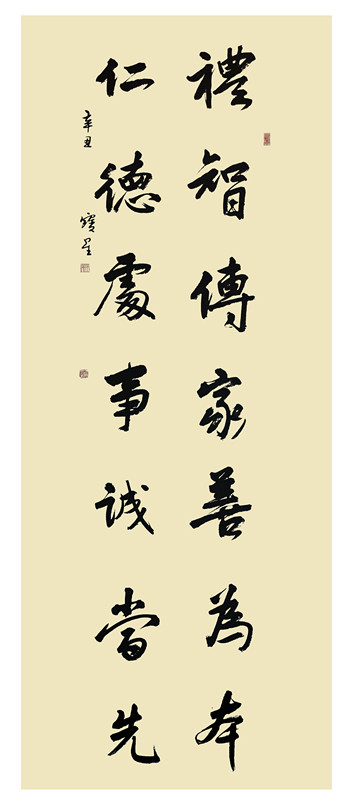 禮智傳家善為本
仁德處事誠當先
辛丑 寶星